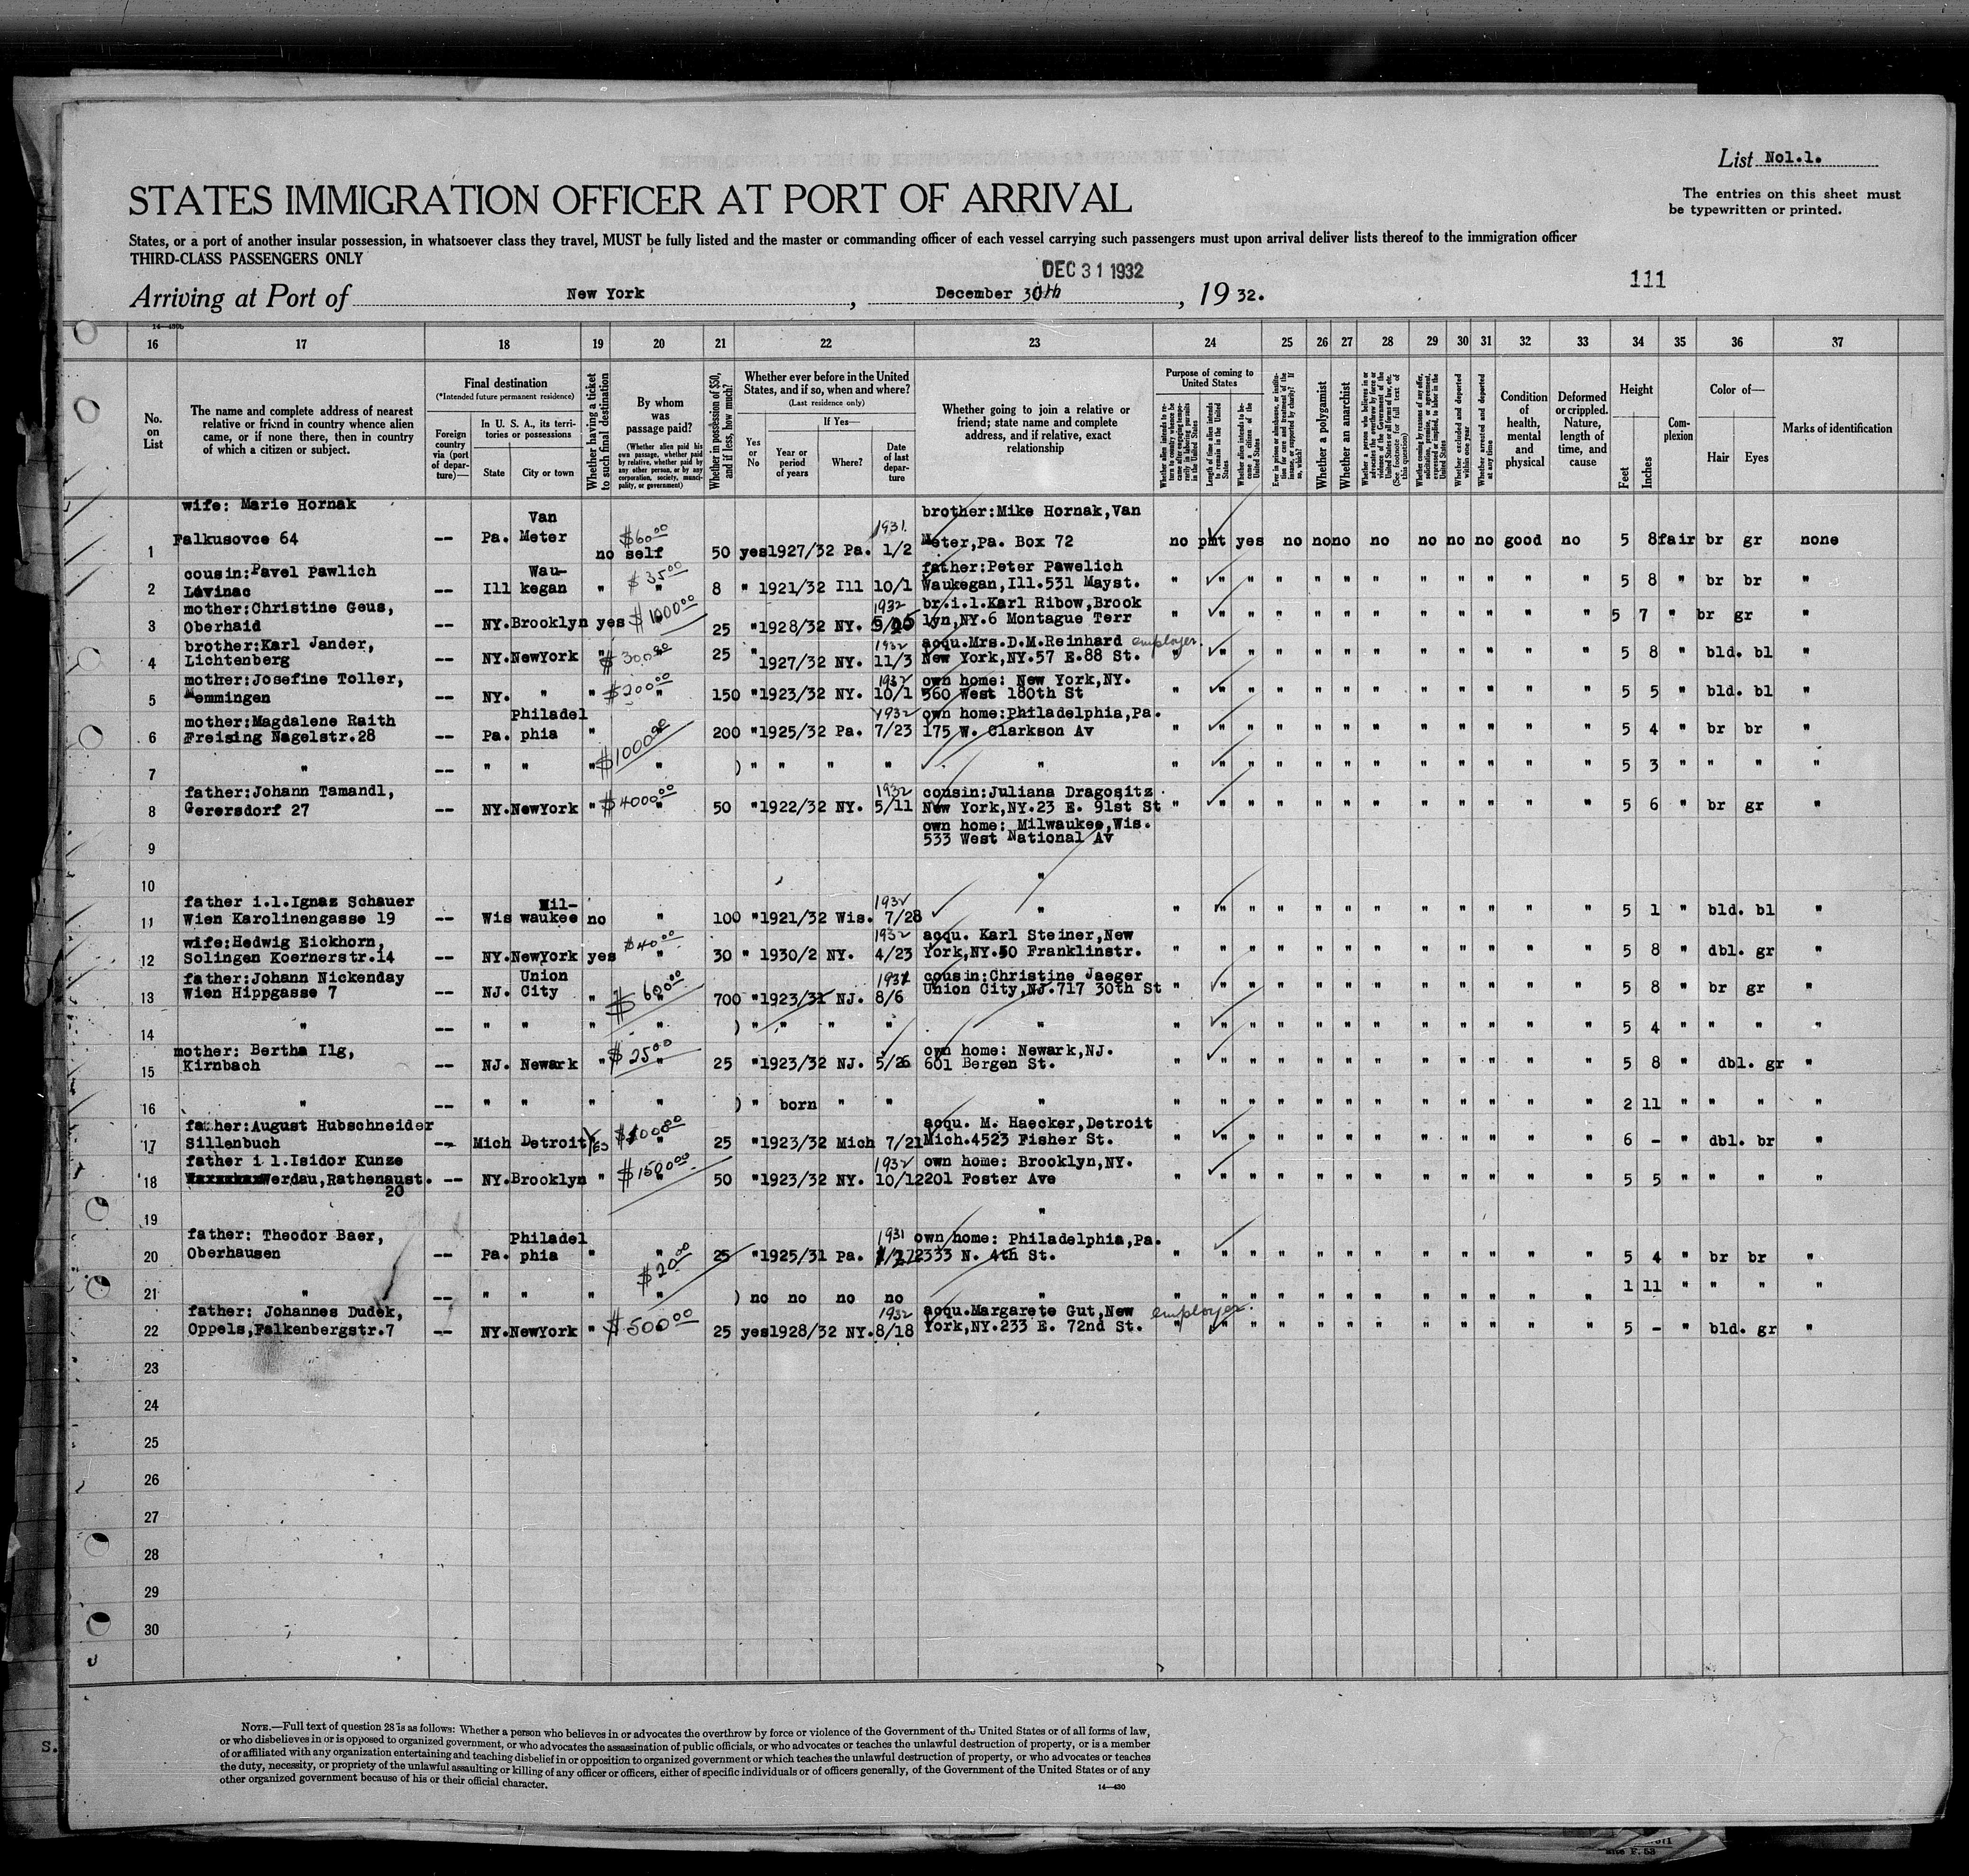 List No1.1.
STATES IMMIGRATION OFFICER AT PORT OF ARRIVAL
The entries on this sheet must
be typewritten or printed.
States, or a port of another insular possession, in whatsoever class they travel, MUST be fully listed and the master or commanding officer of each vessel carrying such passengers must upon arrival deliver lists thereof to the immigration officer
THIRD-CLASS PASSENGERS ONLY
DEC 31 1932
111
Arriving at Port of New York, December 30th, 19 32.
14—430b
16 17 18 19 20 21 22 23 24 25 26 27 28 29 30 31 32 33 34 35 36 37
No. on List
The name and complete address of nearest relative or friend in country whence alien came, or if none there, then in country of which a citizen or subject.
Final destination
(*Intended future permanent residence)
Foreign country via (port of departure)—
In U. S. A., its territories or possessions
State City or town
Whether having a ticket to such final destination
By whom was passage paid?
(Whether alien paid his own passage, whether paid by relative, whether paid by any other person, or by any corporation, society, municipality, or government)
Whether in possession of $50, and if less, how much?
Whether ever before in the United States, and if so, when and where?
(Last residence only)
Yes or No
If Yes—
Year or period of years Where? Date of last departure
Whether going to join a relative or friend; state name and complete address, and if relative, exact relationship
Purpose of coming to United States
Whether alien intends to return to country whence he came after engaging temporarily in laboring pursuits in the United States
Length of time alien intends to remain in the United States
Whether alien intends to become a citizen of the United States
Whether a polygamist
Whether an anarchist
Whether excluded and deported within one year
Whether arrested and deported at any time
Condition of health, mental and physical
Deformed or crippled. Nature, length of time, and cause
Height
Feet Inches
Complexion
Color of—
Hair Eyes
Marks of identification
wife: Marie Hornak Van brother:Mike Hornak,Van
1 Falkusovce 64 -- Pa. Meter no self $60.00 50 yes 1927/32 Pa. 1931. 1/2 Meter,Pa. Box 72 no pmt yes no no no no no no no good no 5 8 fair br gr none
cousin:Pavel Pawlich Wau- father:Peter Pawelich
2 -- Ill kegan " $35.00 " 8 " 1921/32 Ill 10/1 Waukegan,Ill.531 Mayst. " " " " " " " " " " " " " 5 8 " br br "
mother:Christine Geus, 1932 br.i.l.Karl Ribow,Brook
3 Oberhaid -- NY. Brooklyn yes $1000.00 25 " 1928/32 NY. lyn,NY.6 Montague Terr " " " " " " " " " " " " " 5 7 " br gr "
brother:Karl Jander, 1932 acqu.Mrs.D.M.Reinhard employer.
4 Lichtenberg -- NY. NewYork " $300.00 25 " 1927/32 NY. 11/3 New York,NY.57 E.88 St. " " " " " " " " " " " " " 5 8 " bld. bl "
mother:Josefine Toller, 1932 own home: New York,NY.
5 Memmingen -- NY. " " $200.00 " 150 " 1923/32 NY. 10/1 560 West 180th St " " " " " " " " " " " " " 5 5 " bld. bl "
mother:Magdalene Raith Philadel 1932 own home:Philadelphia,Pa.
6 Freising Nagelstr.28 -- Pa. phia " 200 " 1925/32 Pa. 7/23 175 W. Clarkson Av " " " " " " " " " " " " " 5 4 " br br "
7 " -- " " " $1000.00 " ) " " " " " " " " " " " " " " " " " " 5 3 " " " "
father:Johann Tamandl, 1932 cousin:Juliana Dragositz
8 Gerersdorf 27 -- NY. NewYork " $4000.00 50 " 1922/32 NY. 5/11 New York,NY.23 E. 91st St " " " " " " " " " " " " " 5 6 " br gr "
own home: Milwaukee,Wis.
9 533 West National Av
10 "
father i.l.Ignaz Schauer Mil- 1932
11 Wien Karolinengasse 19 -- Wis waukee no " 100 " 1921/32 Wis. 7/28 " " " " " " " " " " " " " " 5 1 " bld. bl "
wife:Hedwig Eickhorn, $40.00 1932 acqu. Karl Steiner,New
12 Solingen Koernerstr.14 -- NY. NewYork yes " 30 " 1930/2 NY. 4/23 York,NY.50 Franklinstr. " " " " " " " " " " " " " 5 8 " dbl. gr "
father:Johann Nickenday Union cousin:Christine Jaeger
13 Wien Hippgasse 7 -- NJ. City " $600.00 700 " 1923/31 NJ. 8/6 Union City,NJ.717 30th St " " " " " " " " " " " " " 5 8 " br gr "
14 " -- " " " " ) " " " " " " " " " " " " " " " " " " 5 4 " " " "
mother: Bertha Ilg, own home: Newark,NJ.
15 Kirnbach -- NJ. Newark " $25.00 " 25 " 1923/32 NJ. 5/26 601 Bergen St. " " " " " " " " " " " " " 5 8 " dbl. gr "
16 " -- " " " " ) " born " " " " " " " " " " " " " " " " 2 11 " " " "
father:August Hubschneider acqu. M. Haecker,Detroit
17 Sillenbuch -- Mich Detroit Yes 25 " 1923/32 Mich 7/21 Mich.4523 Fisher St. " " " " " " " " " " " " " 6 - " dbl. br "
father i l.Isidor Kunze 1932 own home: Brooklyn,NY.
18 Werdau,Rathenaust. 20 -- NY. Brooklyn " $1500.00 50 " 1923/32 NY. 10/12 201 Foster Ave " " " " " " " " " " " " " 5 5 " " " "
19 "
father: Theodor Baer, Philadel 1931 own home: Philadelphia,Pa.
20 Oberhausen -- Pa. phia " " 25 " 1925/31 Pa. 2333 N. 4th St. " " " " " " " " " " " " " 5 4 " br br "
21 " -- " " " $20.00 " ) no no no no " " " " " " " " " " " " " " 1 11 " " " "
father: Johannes Dudek, 1932 acqu.Margarete Gut,New employer.
22 Oppels,Falkenbergstr.7 -- NY. NewYork " $500.00 25 yes 1928/32 NY. 8/18 York,NY.233 E. 72nd St. " " " " " " " " " " " " " 5 - " bld. gr "
23
24
25
26
27
28
29
30
NOTE.—Full text of question 28 is as follows: Whether a person who believes in or advocates the overthrow by force or violence of the Government of the United States or of all forms of law,
or who disbelieves in or is opposed to organized government, or who advocates the assassination of public officials, or who advocates or teaches the unlawful destruction of property, or is a member
of or affiliated with any organization entertaining and teaching disbelief in or opposition to organized government or which teaches the unlawful destruction of property, or who advocates or teaches
the duty, necessity, or propriety of the unlawful assaulting or killing of any officer or officers, either of specific individuals or of officers generally, of the Government of the United States or of any
other organized government because of his or their official character.
14—430